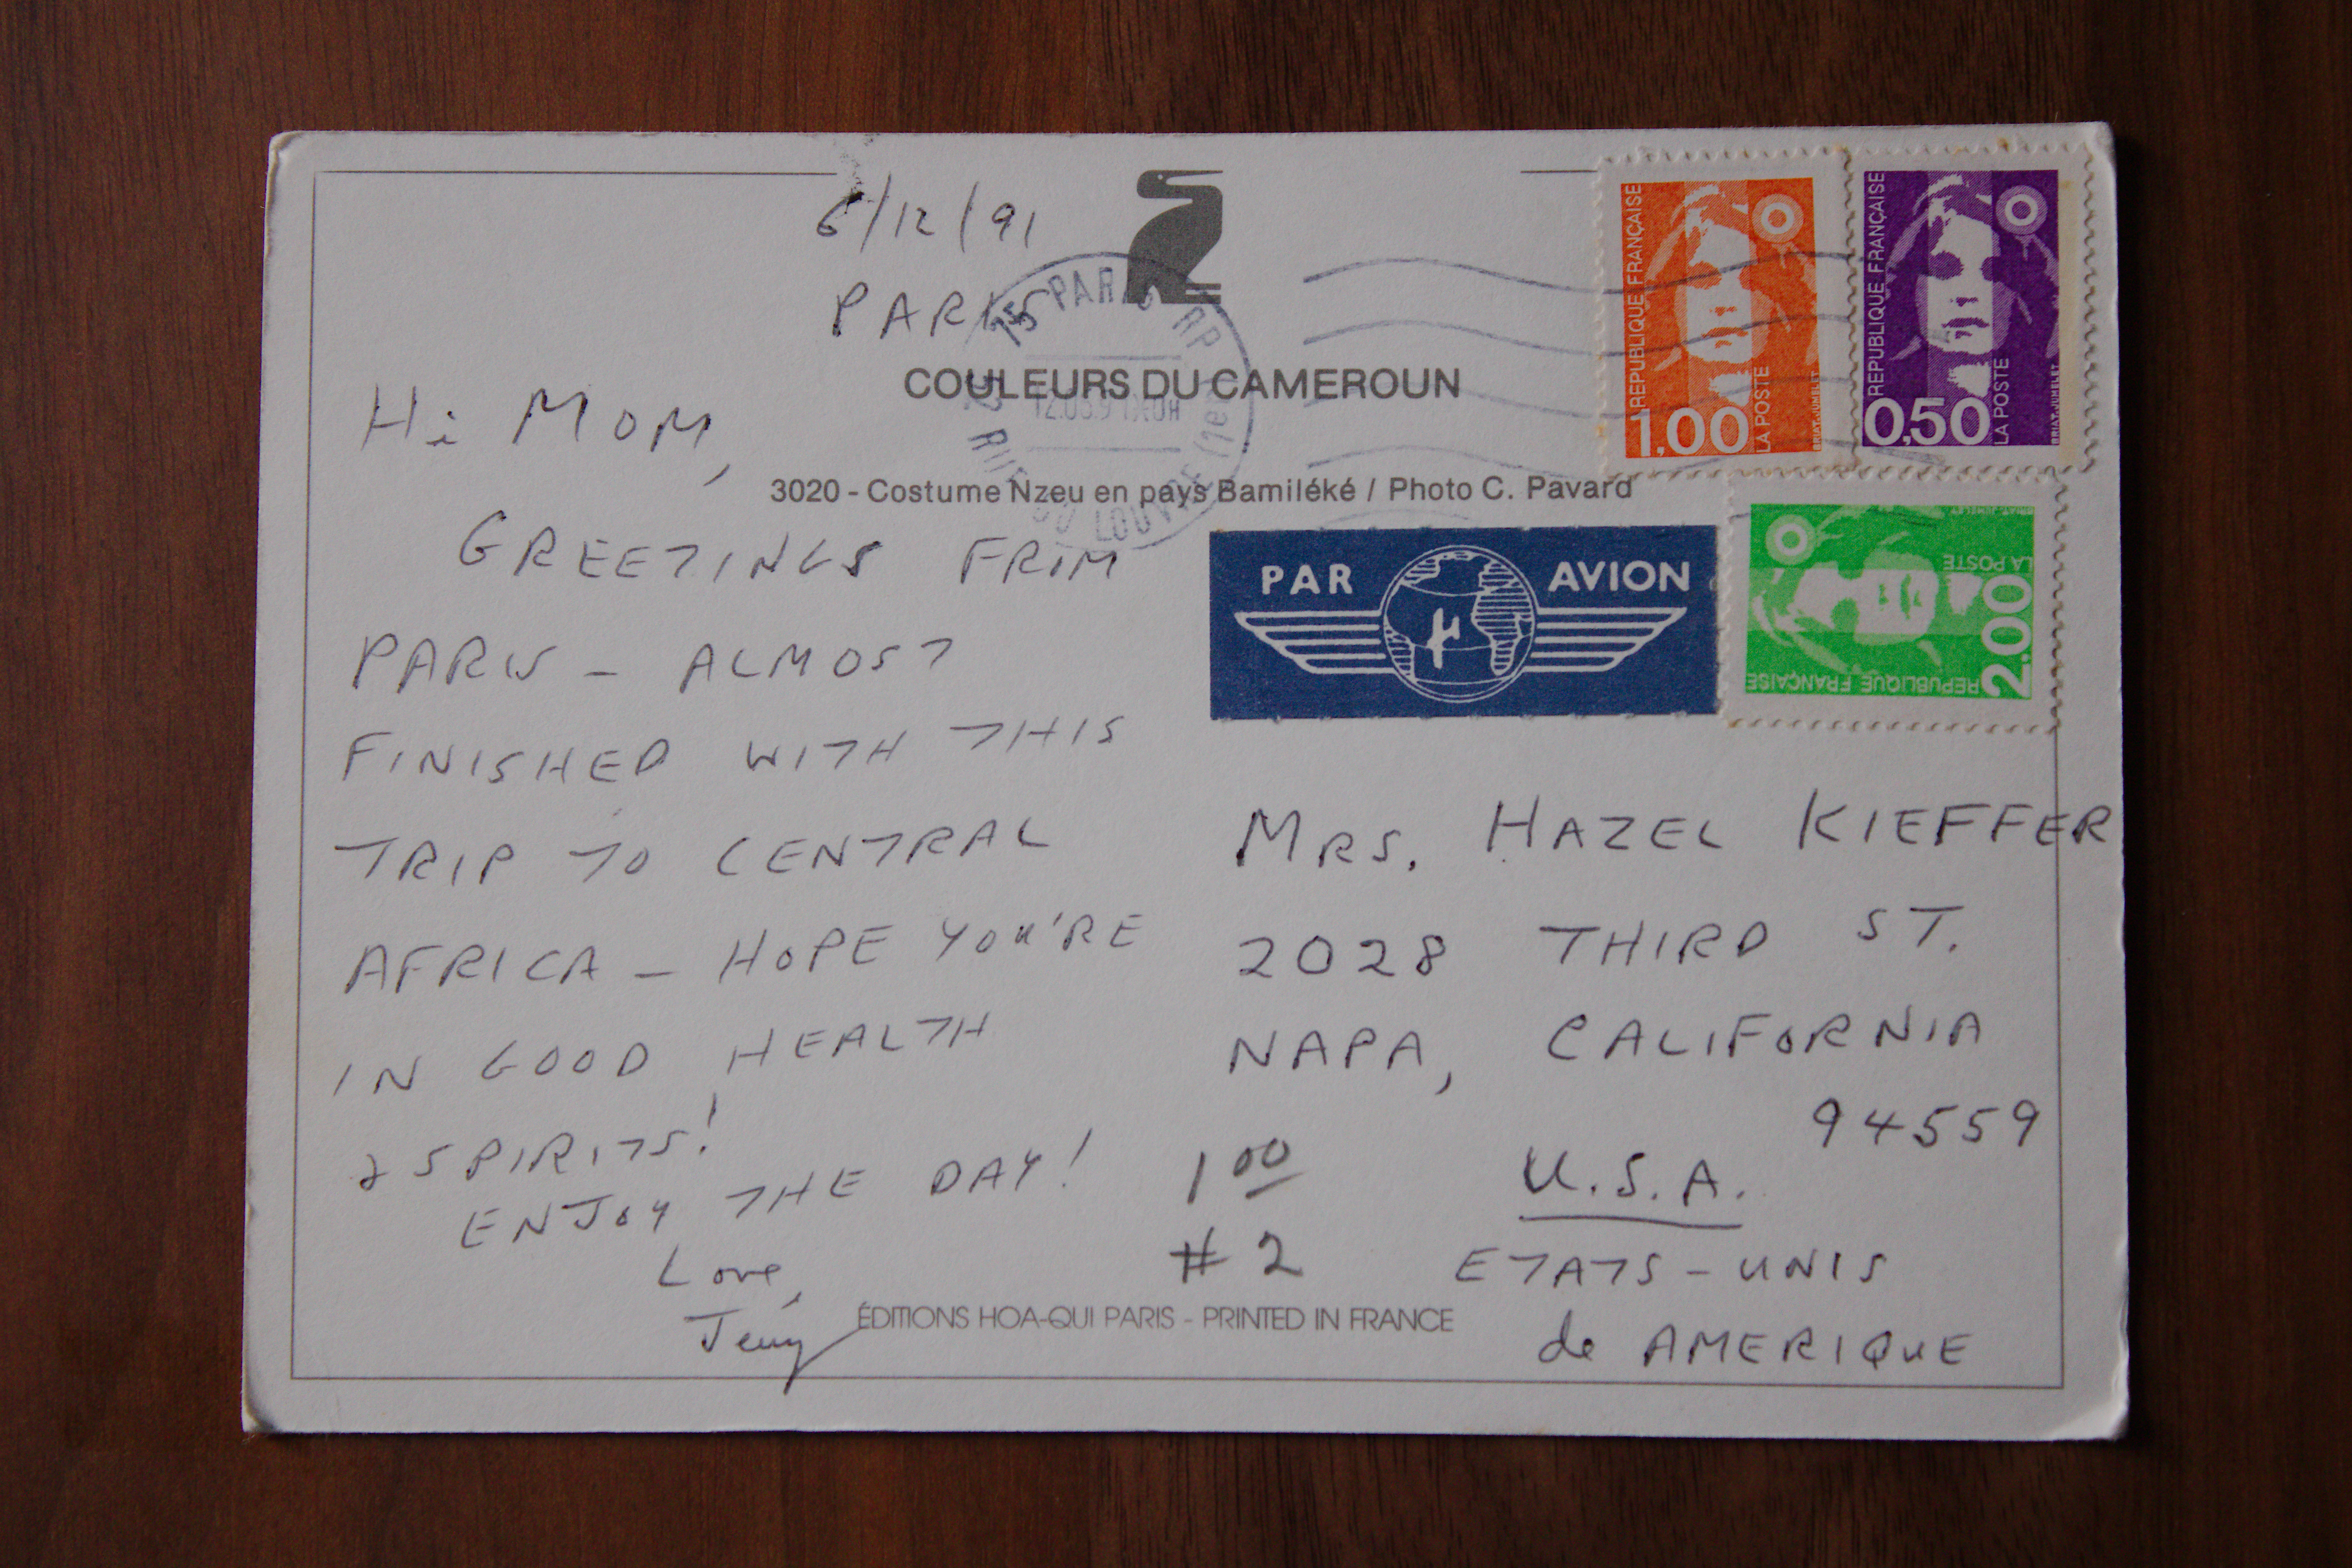 6/12/91
PARIS
COULEURS DU CAMEROUN
3020 - Costume Nzeu en pays Bamiléké / Photo C. Pavard
75 PARIS RP
LOUVRE (1er)
Hi MOM,
GREETINGS FROM
PARIS - ALMOST
FINISHED WITH THIS
TRIP TO CENTRAL
AFRICA - HOPE YOU'RE
IN GOOD HEALTH
& SPIRITS!
ENJOY THE DAY!
Love,
Jerry
REPUBLIQUE FRANÇAISE
1,00
LA POSTE
BRIAT-JUMELET
REPUBLIQUE FRANÇAISE
0,50
LA POSTE
BRIAT-JUMELET
REPUBLIQUE FRANÇAISE
2.00
LA POSTE
BRIAT-JUMELET
PAR AVION
MRS. HAZEL KIEFFER
2028 THIRD ST.
NAPA, CALIFORNIA
94559
U.S.A.
ETATS-UNIS
de AMERIQUE
1 00
#2
ÉDITIONS HOA-QUI PARIS - PRINTED IN FRANCE